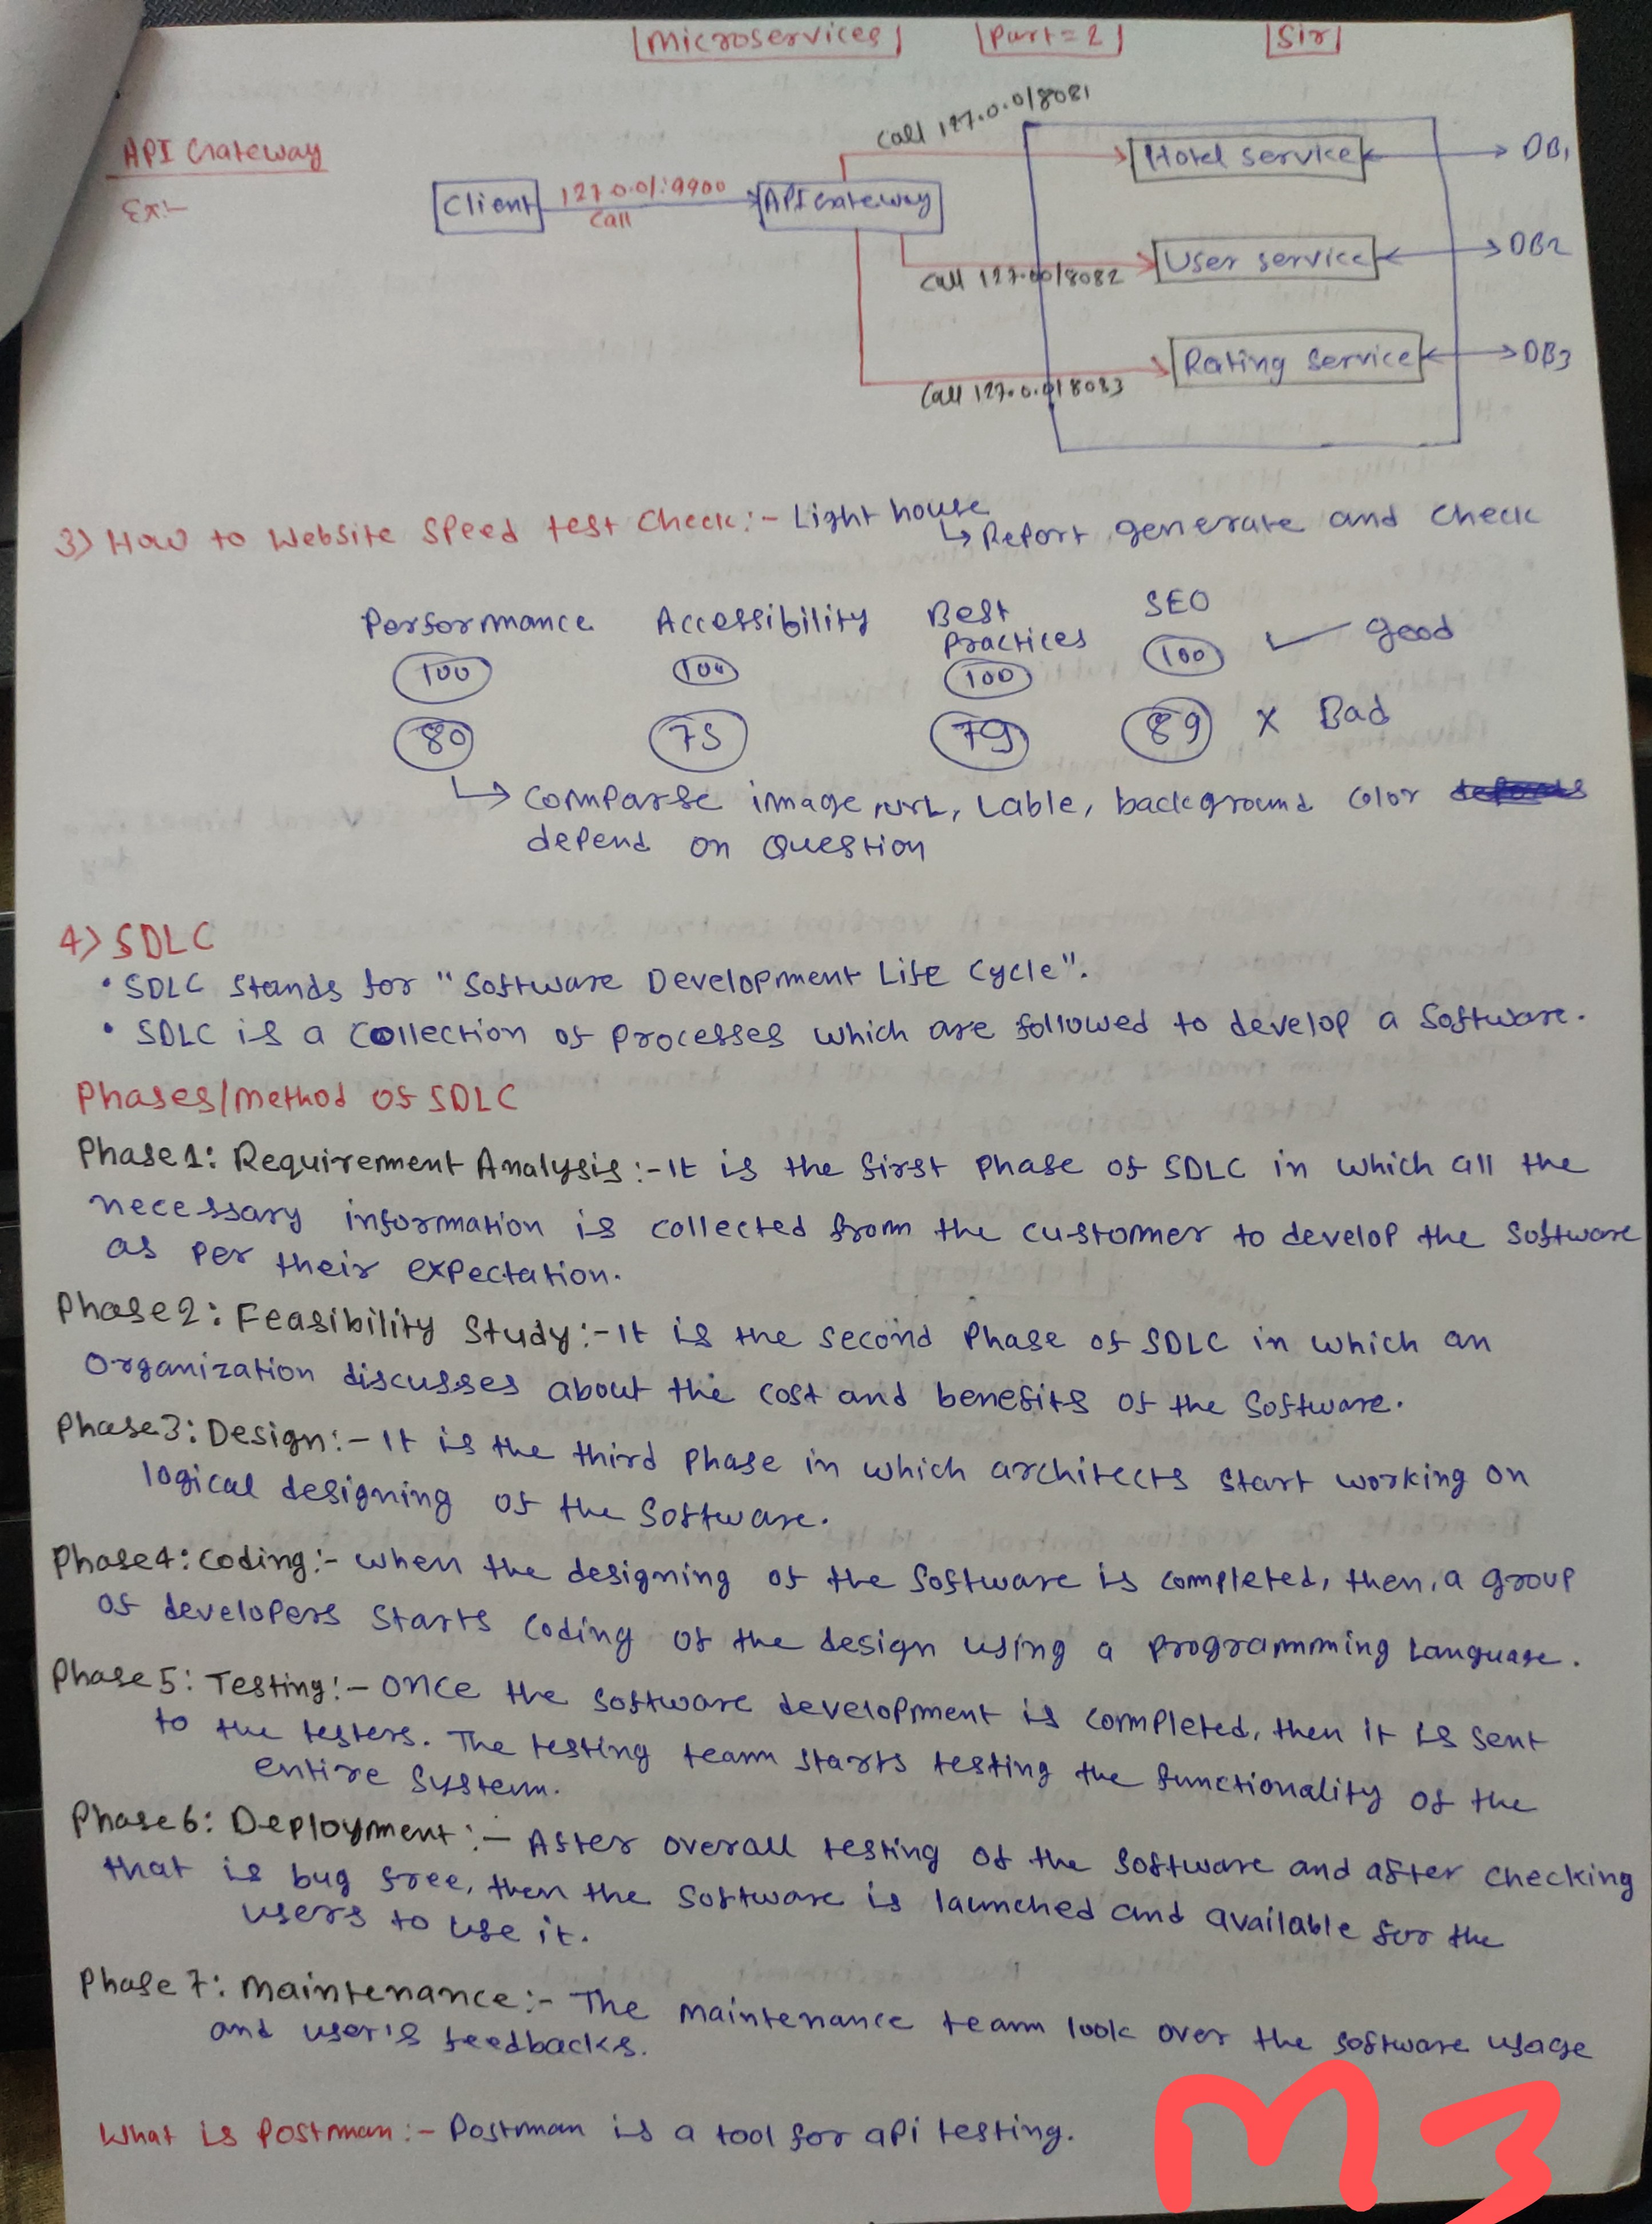 Microservices Part=2 Sir
API Gateway
Ex:-
Client
127.0.0/:9900
Call
API Gateway
Call 127.0.0/8081
Hotel service
DB1
Call 127.00/8082
User service
DB2
Call 127.0.0/8083
Rating Service
DB3
3) How to Website Speed test Check:- Light house
↳ Report generate and check
Performance Accessibility Best Practices SEO
100 100 100 100 ✓ good
80 75 79 89 x Bad
↳ comparse image, url, Lable, background color
depend on Question
4) SDLC
• SDLC Stands for "Software Development Life Cycle".
• SDLC is a Collection of Processes which are followed to develop a Software.
Phases/method of SDLC
Phase1: Requirement Analysis:- It is the first Phase of SDLC in which all the
necessary information is collected from the customer to develop the Software
as per their expectation.
Phase2: Feasibility Study:- It is the second Phase of SDLC in which an
organization discusses about the cost and benefits of the Software.
Phase3: Design:- It is the third Phase in which architects start working on
logical designing of the Software.
Phase4: Coding:- when the designing of the Software is completed, then, a group
of developers Starts Coding of the design using a programming Language.
Phase 5: Testing:- Once the software development is completed, then it is sent
to the testers. The testing team starts testing the functionality of the
entire System.
Phase6: Deployment:- After overall testing of the software and after checking
that is bug free, then the Software is launched and available for the
users to use it.
Phase 7: Maintenance:- The maintenance team look over the software usage
and user's feedbacks.
What is Postman:- Postman is a tool for api testing.
M3